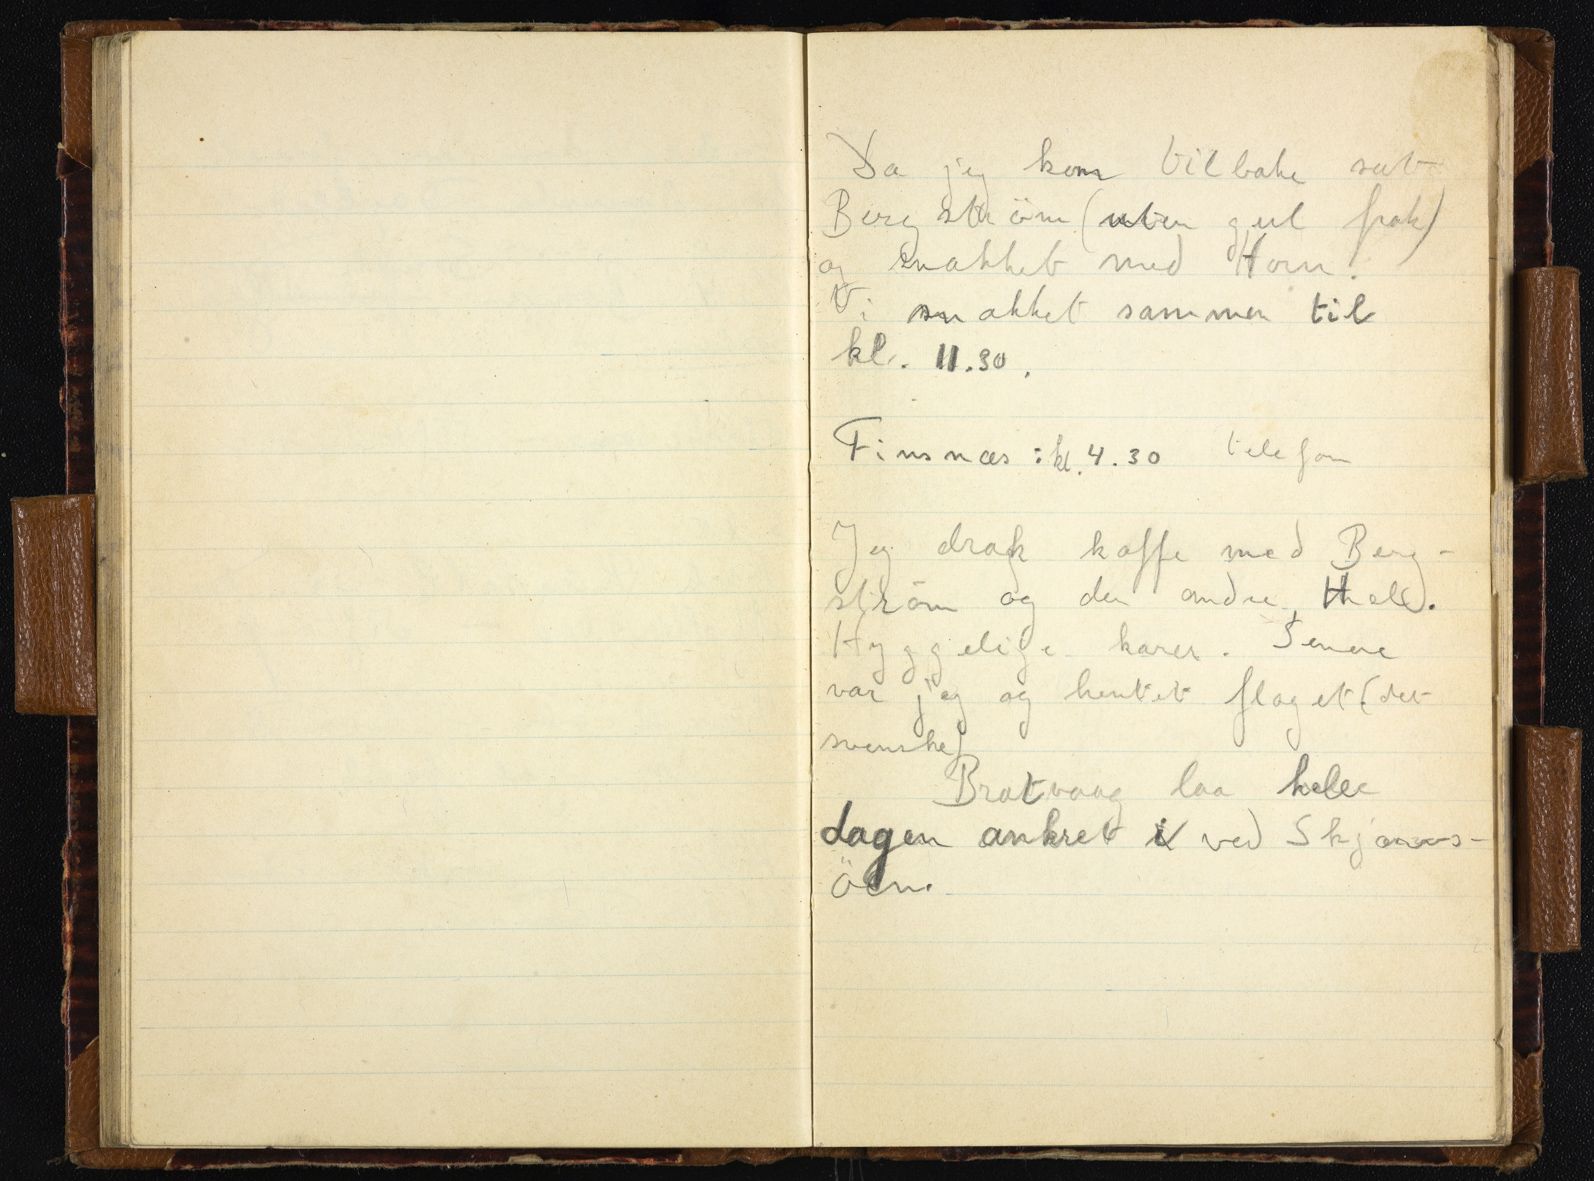 Da jeg kom tilbake sat
Bergström (uten gul frak)
og snakket med Horn.
Vi snakket sammen til
kl. 11.30.
Finsnæs: kl. 4.30 telefon
Jeg drak kaffe med Berg-
ström og den andre,
Hyggelige karer. Senere
var jeg og hentet flaget (det
svenske)
Bratvaag laa hele
dagen ankret i ved Skjærvs-
öen.